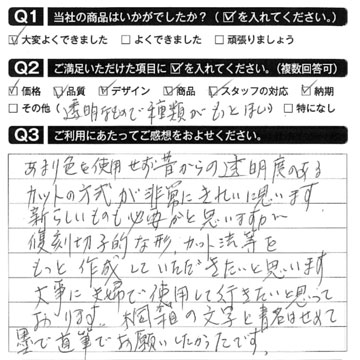 Q1 当社の商品はいかがでしたか？（☑を入れてください。）
☑大変よくできました □よくできました □頑張りましょう
Q2 ご満足いただけた項目に☑を入れてください。（複数回答可）
☑価格 ☑品質 ☑デザイン ☑商品 ☑スタッフの対応 ☑納期
□その他（透明なもので種類がもっとほしい）□特になし
Q3 ご利用にあたってご感想をおよせください。
あまり色を使用せず昔からの透明度のある
カットの方式が非常にきれいに思います
新らしいものも必要かと思いますが
復刻切子的な形、カット法等を
もっと作成していただきたいと思います
大事に夫婦で使用して行きたいと思って
おります。桐箱の文字と書名はせめて
墨で直筆でお願いしたかったです。